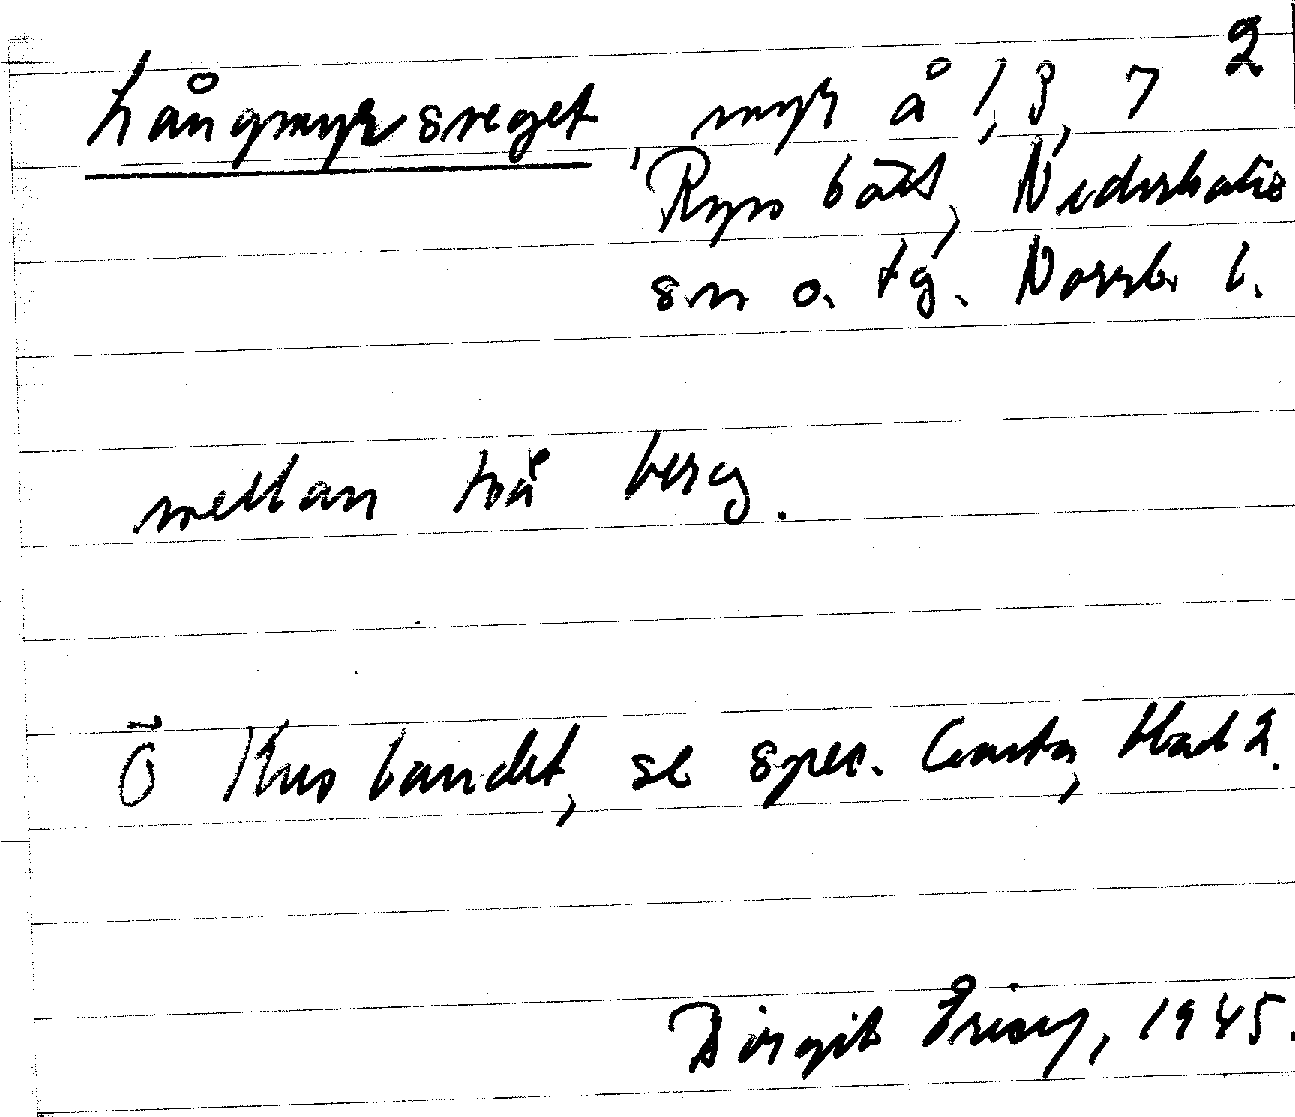 2
Långmyrsneget myr å 1, 3, 7
Ryss bält, Nederkalix
sn o. tg. Norrb. l.
mellan två berg.
Ö Kusbandet, se spec. Karta, blad 2.
Birgit Falck, 1945.